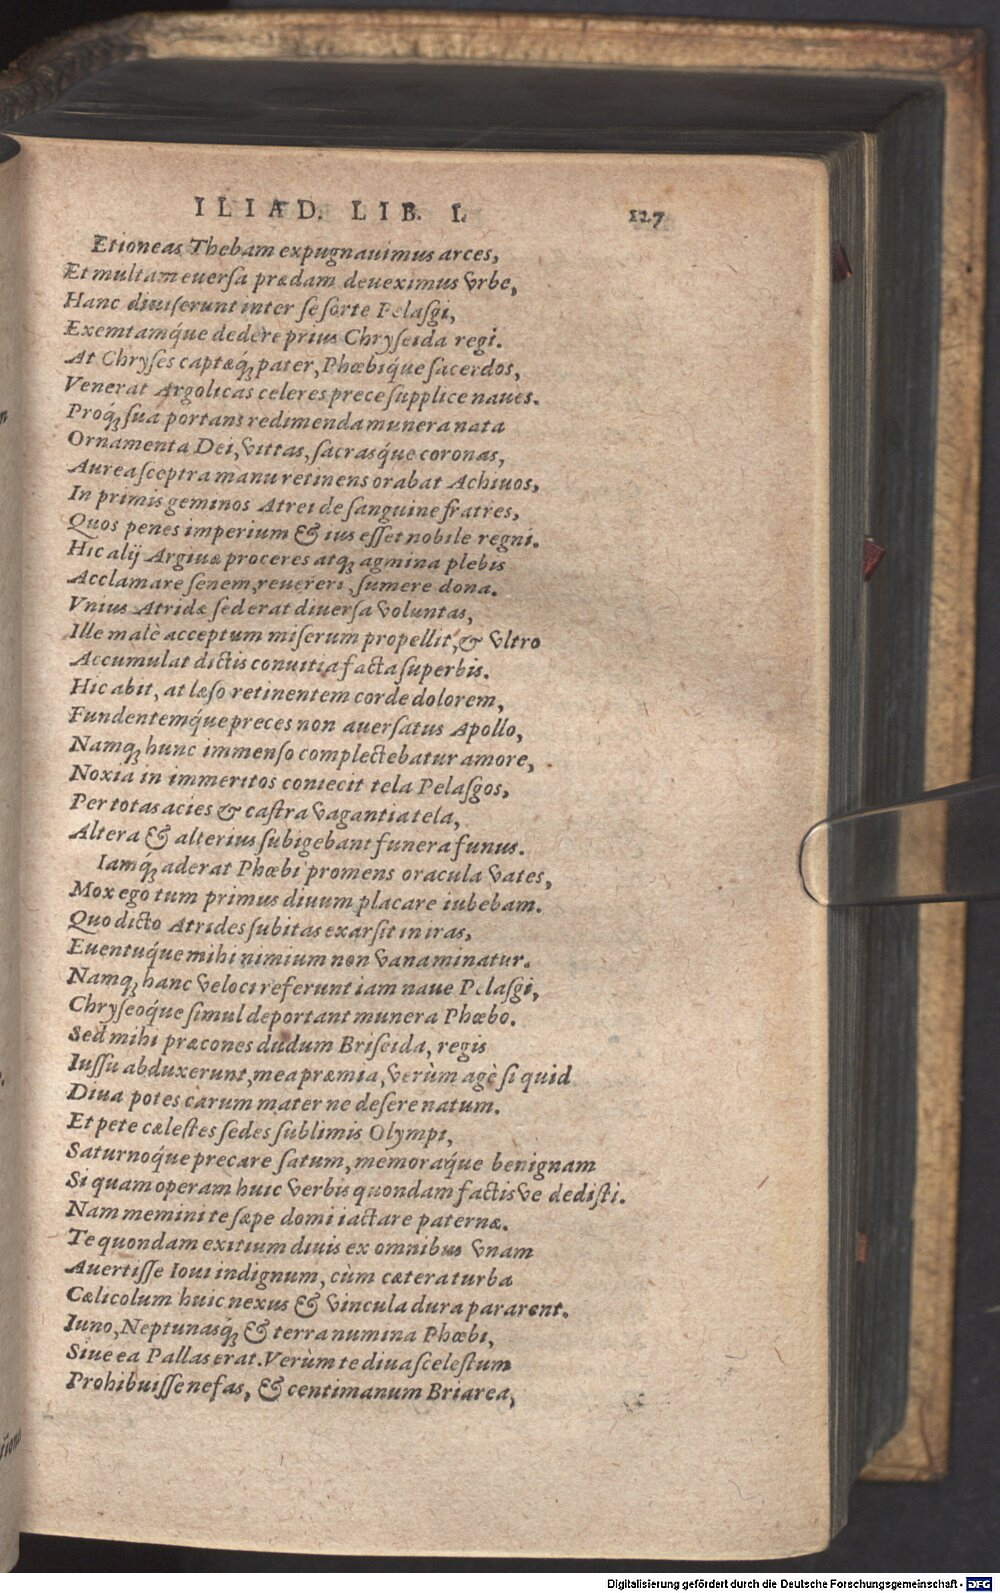 ILIAD. LIB. I. 127
Etioneas Thebam expugnauimus arces,
Et multam euersa prædam deueximus vrbe,
Hanc diuiserunt inter se sorte Pelasgi,
Exemtamq́ue dedere prius Chryseida regi.
At Chryses captæq́ꝫ pater, Phœbiq́ue sacerdos,
Venerat Argolicas celeres prece supplice naues.
Proq́ꝫ sua portans redimenda munera nata
Ornamenta Dei, vittas, sacrasq́ue coronas,
Aurea sceptra manu retinens orabat Achiuos,
In primis geminos Atrei de sanguine fratres,
Quos penes imperium & ius esset nobile regni.
Hic alij Argiuæ proceres atqꝫ agmina plebis
Acclamare senem, reuereri, sumere dona.
Vnius Atridæ sed erat diuersa voluntas,
Ille malè acceptum miserum propellit, & vltro
Accumulat dictis conuitia facta superbis.
Hic abit, at læso retinentem corde dolorem,
Fundentemq́ue preces non auersatus Apollo,
Namqꝫ hunc immenso complectebatur amore,
Noxia in immeritos coniecit tela Pelasgos,
Per totas acies & castra vagantia tela,
Altera & alterius subigebant funera funus.
Iamq́ꝫ aderat Phœbi promens oracula vates,
Mox ego tum primus diuum placare iubebam.
Quo dicto Atrides subitas exarsit in iras,
Euentuq́ue mihi nimium non vana minatur.
Namqꝫ hanc veloci referunt iam naue Pelasgi,
Chryseoq́ue simul deportant munera Phœbo.
Sed mihi præcones dudum Briseida, regis
Iussu abduxerunt, mea præmia, verùm agè si quid
Diua potes carum mater ne desere natum.
Et pete cælestes sedes sublimis Olympi,
Saturnoq́ue precare satum, memoraq́ue benignam
Si quam operam huic verbis quondam factisve dedisti.
Nam memini te sæpe domi iactare paternæ.
Te quondam exitium diuis ex omnibus vnam
Auertisse Ioui indignum, cùm cætera turba
Cælicolum huic nexus & vincula dura pararent.
Iuno, Neptunusq́ꝫ & terra numina Phœbi,
Siue ea Pallas erat. Verùm te diua scelestum
Prohibuisse nefas, & centimanum Briarea,
Digitalisierung gefördert durch die Deutsche Forschungsgemeinschaft - DFG